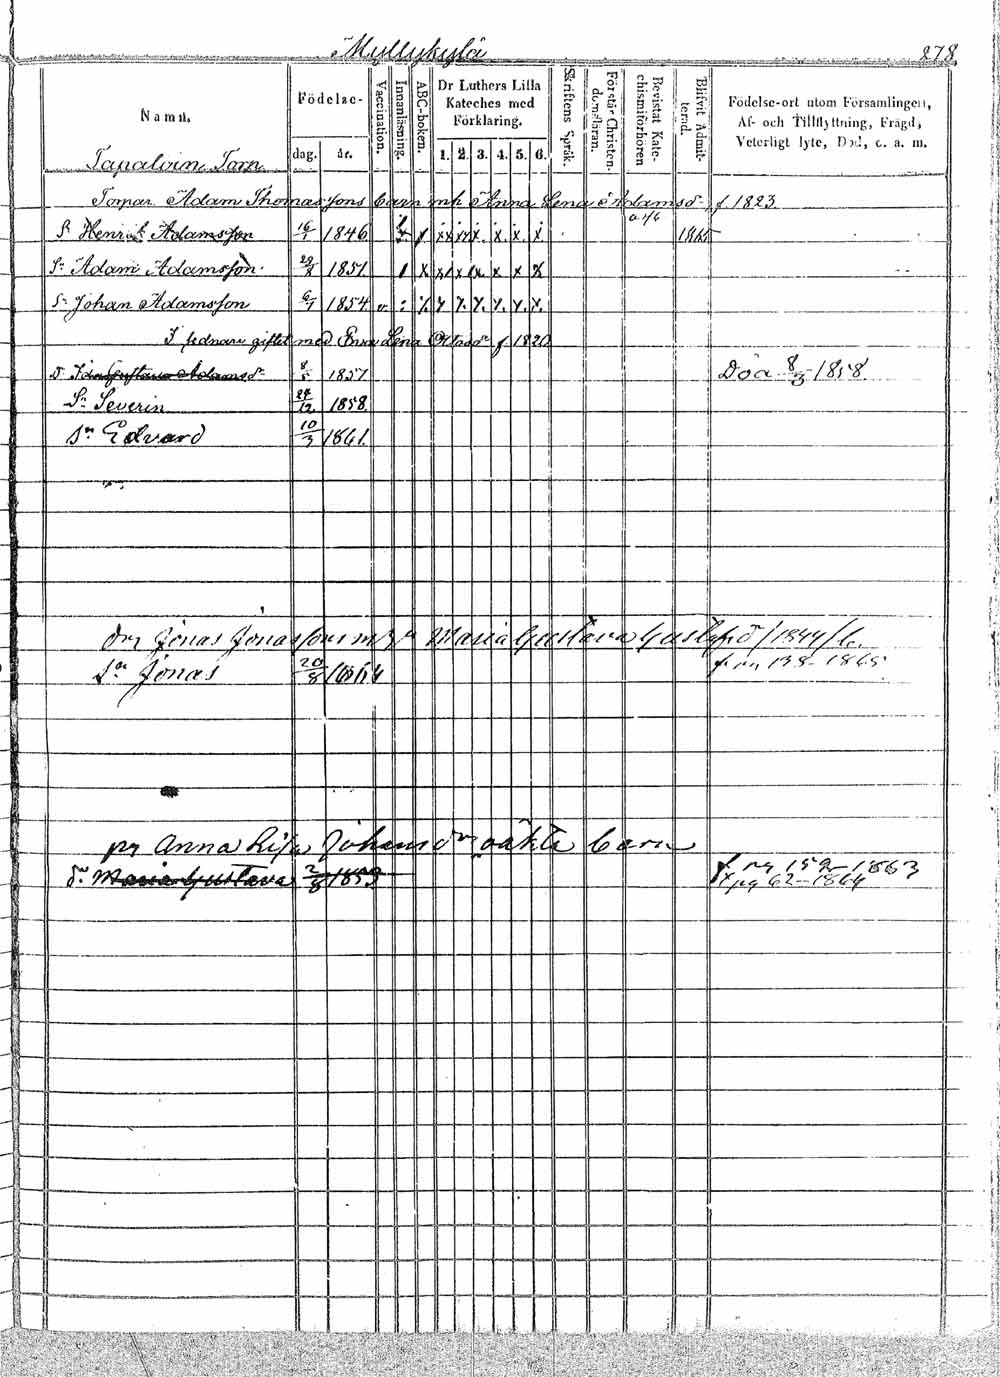 Myllykylä 278.
Namn. Födelse- dag. år. Vaccination. Innanläsning. ABC-boken. Dr Luthers Lilla Kateches med Förklaring. 1. 2. 3. 4. 5. 6. Skriftens Språk. Förstår Christendomsläran. Bevistat Katechismiförhören Blifvit Admitterad. Födelse-ort utom Församlingen, Af- och Tillflyttning, Frägd, Veterligt lyte, Död, c. a. m.
Torp
Adam Thomassons barn mh Anna Lena Adamsdr f 1823
Sn Henrik Adamsson 16/1 1846 x x x x x x x 1865
Sn Adam Adamsson 1851 1 x x x x x x x
Sn Johan Adamsson 6/1 1854 v. x x x x x x x
I sednare giftet med Lena f 1820
Dr Gustava Adamsdr 8/5 1857 Död 8/3 1858
Sn Severin 24/12 1858
Sn Edvard 10/3 1861.
Jonas Jonassons m Maria Gustava 1844
Sn Jonas 20/8 1864 från 138 1865
Anna Lisa Johansdrs oäkta barn
dr Maria Gustava 2/8 1853 pg 1863
pg 62 1864